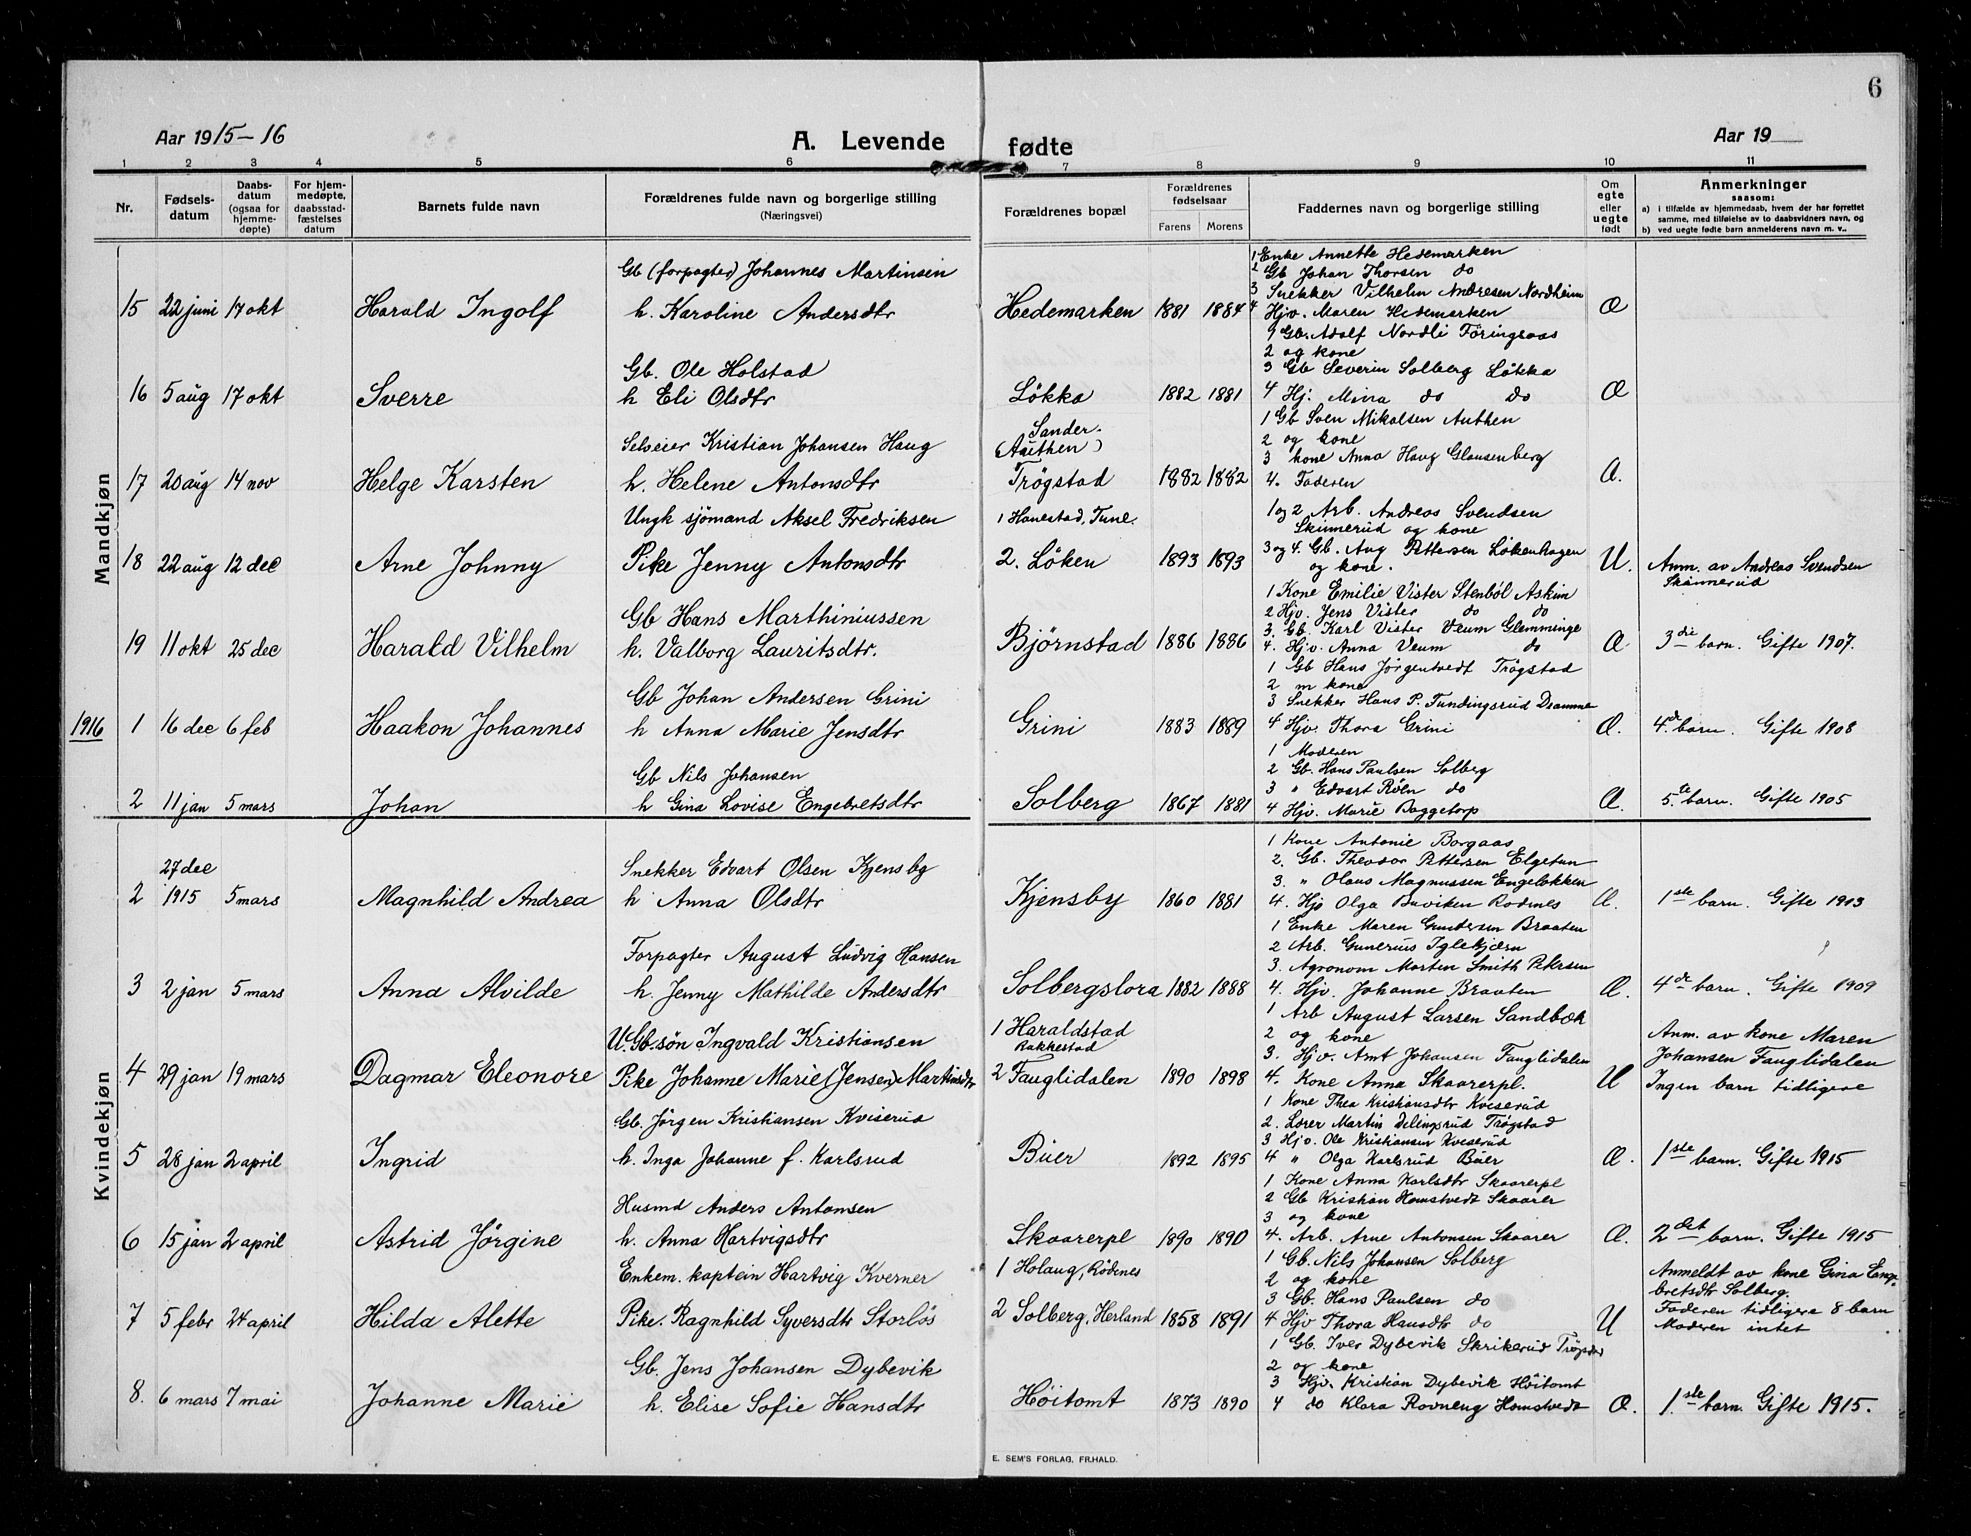 6
Aar 1915–16
A. Levende fødte
Aar 19
1 2 3 4 5 6 7 8 9 10 11
Nr.
Fødsels-
datum
Daabs-
datum
(ogsaa for
hjemme-
døpte)
For hjem-
medøpte,
daabsstad-
fæstelses
datum
Barnets fulde navn
Forældrenes fulde navn og borgerlige stilling
(Næringsvei)
Forældrenes bopæl
Forældrenes
fødselsaar
Farens Morens
Faddernes navn og borgerlige stilling
Om
egte
eller
uegte
født
Anmerkninger
saasom:
a) i tilfælde av hjemmedaab, hvem der har forrettet
samme, med tilføielse av to daabsvidners navn, og
b) ved uegte fødte barn anmelderens navn m. v..
Mandkjøn
Gb (forpagter) Johannes Martinsen
15 22 juni 17 okt Harald Ingolf h. Karoline Andersdtr Hedemarken 1881 1884 Æ
1 Enke Annette Hedemarken
2 Gb Johan Thorsen do
3 Snekker Vilhelm Andresen Nordheim
4 Hjv. Maren Hedemarken
Gb. Ole Holstad
16 5 aug 17 okt Sverre h Eli Olsdtr Løkka 1882 1881 Æ
1 Gb. Adolf Nordli Føringsaas
2 og kone
3 Gb Severin Solberg Løkka
4 Hj. Mina do do
Selveier Kristian Johansen Haug
Sander.
(Authen)
17 20 aug 14 nov Helge Karsten h. Helene Antonsdtr Trøgstad 1882 1882 Æ.
1 Gb Sven Mikalsen Authen
2 og kone
3 kone Anna Haug Glausenberg
4. Faderen
Ungk sjømand Aksel Fredriksen 1 Hanestad, Tune.
18 22 aug 12 dec Arne Johnny Pike Jenny Antonsdtr 2. Løken 1893 1893 U.
1 og 2 Arb. Andreas Svendsen
Skinnerud og kone
3 og 4. Gb. Aug Pettersen Løkenhagen
og kone.
Anm. av Andreas Svendsen
Skinnerud
Gb Hans Marthiniussen
19 11 okt 25 dec Harald Vilhelm h. Valborg Lauritsdtr. Bjørnstad 1886 1886 Æ 3die barn. Gifte 1907.
1 Kone Emilie Vister Stenbøl Askim
2 Hjv. Jens Vister do do
3. Gb. Karl Vister Veum Glemminge
4. Hjv. Anna Veum do
Gb Johan Andersen Grini
1916 1 16 dec 6 feb Haakon Johannes h Anna Marie Jensdtr Grini 1883 1889 Æ. 4de barn. Gifte 1908
1 Gb Hans Jørgentvedt Trøgstad
2 m kone
3 Snekker Hans P. Fundingsrud Dramme
4 Hjv. Thora Grini
Gb Nils Johansen
2 11 jan 5 mars Johan h Gina Lovise Engebretsdtr Solberg 1867 1881 Æ. 5.te barn. Gifte 1905
1 Moderen
2 Gb. Hans Paulsen Solberg
3 " Edvart Røen do
4 Hjv. Marie Baggetorp
Kvindekjøn
27 dec
Snekker Edvart Olsen Kjensbg
2 1915 5 mars Magnhild Andrea h Anna Olsdtr Kjensby 1860 1881 Æ. 1ste barn. Gifte 1913
1 Kone Antonie Borgaas
2. Gb. Theodor Pettersen Elgetun
3. " Olaus Magnussen Engeløkken
4. Hjv Olga Buviken Rødenes
Forpagter August Ludvig Hansen
3 2 jan 5 mars Anna Alvilde h. Jenny Mathilde Andersdtr Solbergslora 1882 1888 Æ. 4de barn. Gifte 1909
1 Enke Maren Gundersen Braaten
2 Arb. Gunerius Iglekjærn
3. Agronom Morten Smith Petersen
4. Hjv. Johanne Braaten
U. Gb. søn Ingvald Kristiansen 1 Haraldstad
Rakkestad
4 29 jan 19 mars Dagmar Eleonore Pike Johanne Marie (Jensen) Martinsdtr 2 Fauglidalen 1890 1898 U
1 Arb August Larsen Sandbæk
2 og kone
3. Hjv. Amt Johansen Fauglidalen
4. Kone Anna Skaarerpl.
Anm. av kone Maren
Johansen Fauglidalen
Ingen barn tidligere
Gb. Jørgen Kristiansen Kviserud
5 28 jan 2 april Ingrid h. Inga Johanne f. Karlsrud Buer 1892 1895 Æ. 1ste barn. Gifte 1915
1 Kone Thea Kristiansdtr Kviserud
2. Lærer Martin Delingsrud Trøgstad
3 Hjv. Ole Kristiansen Kviserud
4 " Olga Karlsrud Buer
Husmd Anders Antonsen
6 15 jan 2 april. Astrid Jørgine h. Anna Hartvigsdtr Skaarerpl 1890 1890 Æ. 2det barn. Gifte 1915
1 Kone Anna Karlsdtr Skaarerpl
2 Gb Kristian Homstvedt Skaarer
3 og kone
4. Arb. Arne Antonsen Skaarer
Enkem. kaptein Hartvig Kverner 1 Holaug, Rødenes
7 5 febr 24 april Hilda Alette Pike. Ragnhild Syversdtr Storløs 2 Solberg, Herland 1858 1891 U
1 Gb. Nils Johansen Solberg
2 og kone
3 Gb. Hans Paulsen do
4 Hjv Thora Hansdtr do
Anmeldt av kone Gina Enge-
bretsdtr Solberg.
Faderen tidligere 8 barn
Moderen intet
Gb. Jens Johansen Dybevik
8. 6 mars 7 mai Johanne Marie h. Elise Sofie Hansdtr Høitomt 1873 1890 Æ. 1.ste barn. Gifte 1915.
1 Gb. Iver Dybevik Skrikerud Trøgstad
2 og kone
3 Hjv. Kristian Dybevik Høitomt
4 do Klara Rovneng Homstvedt
E. SEM'S FORLAG, FR.HALD.